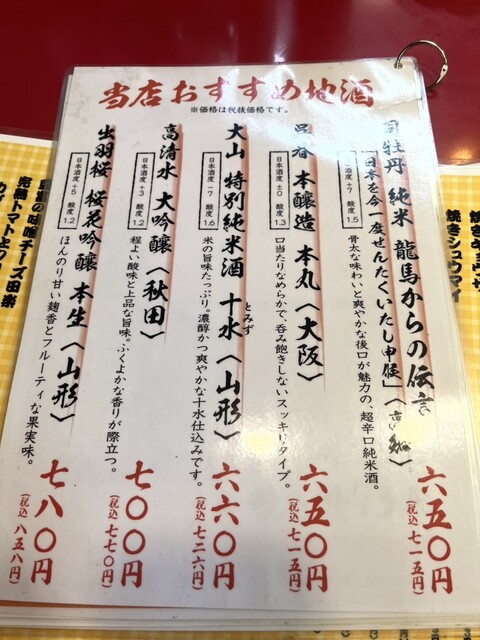 当店おすすめ地酒
※価格は税抜価格です。
牡丹 純米 龍馬からの伝言
「日本を今一度せんたくいたし申候」〈高知〉
日本酒度 +7 酸度 1.5
骨太な味わいと爽やかな後口が魅力の、超辛口純米酒。
六五〇円
(税込 七一五円)
呉春 本醸造 本丸〈大阪〉
日本酒度 ±0 酸度 1.3
口当たりなめらかで、呑み飽きしないスッキリタイプ。
六五〇円
(税込 七一五円)
大山 特別純米酒 十水〈山形〉
とみず
日本酒度 −7 酸度 1.6
米の旨味たっぷり。濃醇かつ爽やかな十水仕込みです。
六六〇円
(税込 七二六円)
高清水 大吟醸〈秋田〉
日本酒度 +3 酸度 1.2
程よい酸味と上品な旨味。ふくよかな香りが際立つ。
七〇〇円
(税込 七七〇円)
出羽桜 桜花吟醸 本生〈山形〉
日本酒度 +5 酸度 1.2
ほんのり甘い麹香とフルーティな果実味。
七八〇円
(税込 八五八円)
焼きギョウザ
焼きシュウマイ
の味噌チーズ田楽
完熟トマト